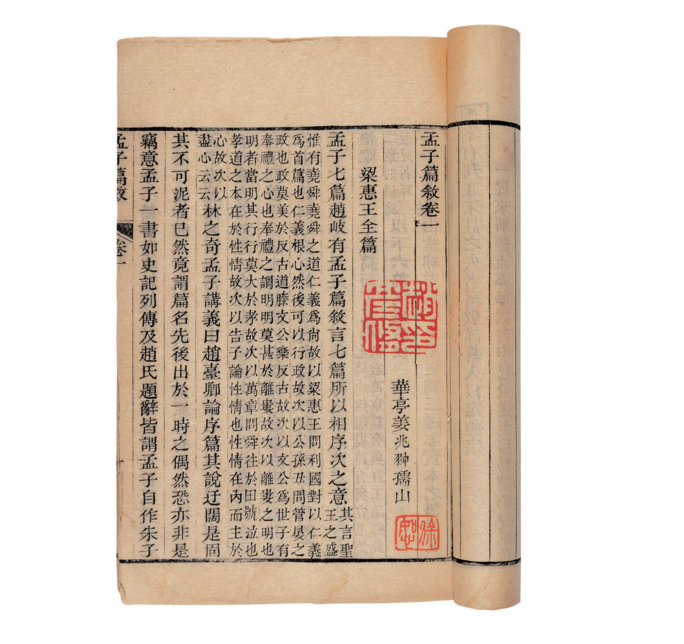 孟子篇敘卷一
華亭姜兆翀孺山
徐恕
梁惠王全篇
孟子七篇趙岐有孟子篇敘言七篇所以相序次之意
其言聖
王之盛
惟有堯舜堯舜之道仁義爲尙故以梁惠王問利國對以仁義
爲首篇也仁義根心然後可以行政故次以公孫丑問管晏之
政也政莫美於反古道滕文公樂反古故次以文公爲世子有
奉禮之心也奉禮之謂明明莫甚於離婁故次以離婁之明也
明者當明其行行莫大於孝故次以萬章問舜往於田號泣也
孝道之本在於性情故次以告子論性情也性情在內而主於
心故次以
盡心云云
林之奇孟子講義曰趙臺卿論序篇其說迂闊是固
其不可泥者已然竟謂篇名先後出於一時之偶然恐亦非是
竊意孟子一書如史記列傳及趙氏題辭皆謂孟子自作朱子
孟子篇敘
卷一